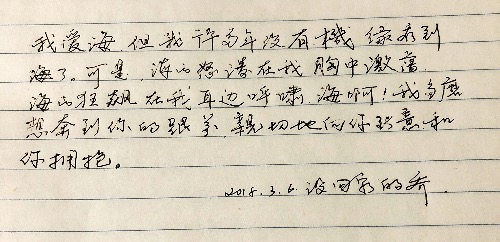 我爱海,但我许多年没有機缘看到
海了。可是,海的怒涛在我胸中激荡,
海的狂飙在我耳边呼啸,海呵!我多麽
想奔到你的跟前,親切地向你致意和
你拥抱。
2018.3.6.